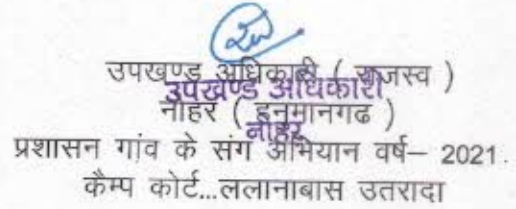 उपखण्ड अधिकारी ( राजस्व )
उपखण्ड अधिकारी
नोहर ( हनुमानगढ )
नोहर
प्रशासन गांव के संग अभियान वर्ष– 2021.
कैम्प कोर्ट...ललानाबास उतरादा